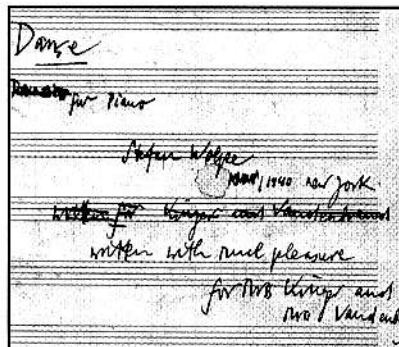 Danse
für Piano
Stefan Wolpe
1940 new york
written für Kinger and
written with much pleasure
for Mrs Kinger and
Mrs Vanden